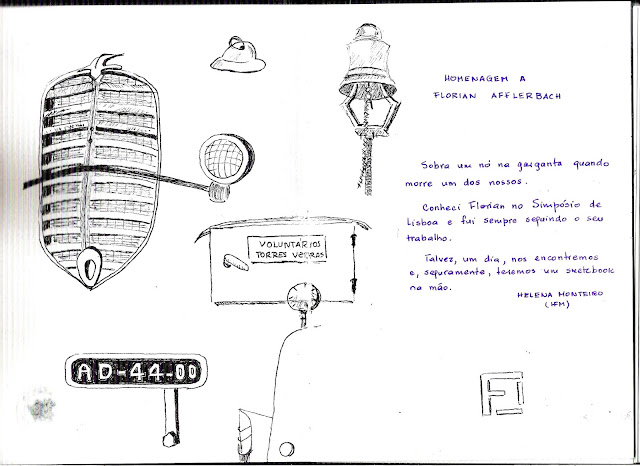 HOMENAGEM A
FLORIAN AFFLERBACH
Sobra um nó na garganta quando
morre um dos nossos.
Conheci Florian no Simpósio de
Lisboa e fui sempre seguindo o seu
trabalho.
Talvez, um dia, nos encontremos
e, seguramente, teremos um sketchbook
na mão.
HELENA MONTEIRO
(HFM)
VOLUNTÁRIOS
TORRES VEDRAS
AD-44-00